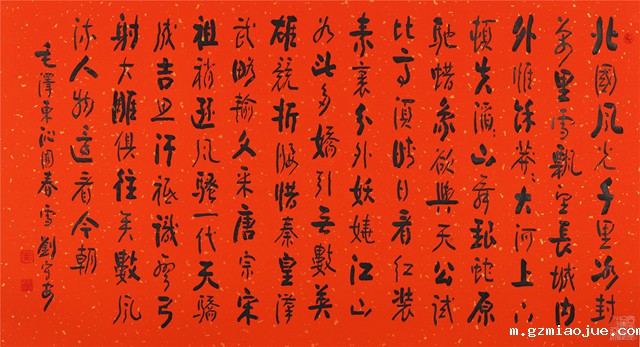 北國风光千里冰封
萬里雪飄望長城内
外惟餘莽〻大河上下
頓失滔〻山舞銀蛇原
馳蜡象欲與天公試
比高須晴日看红装
素裹分外妖嬈江山
如此多嬌引无數英
雄競折腰惜秦皇漢
武略輸文采唐宗宋
祖稍遜风騷一代天驕
成吉思汗祗識彎弓
射大雕俱往矣數风
流人物還看今朝
毛澤東沁園春雪 劉守安
m.gzmiaojue.com